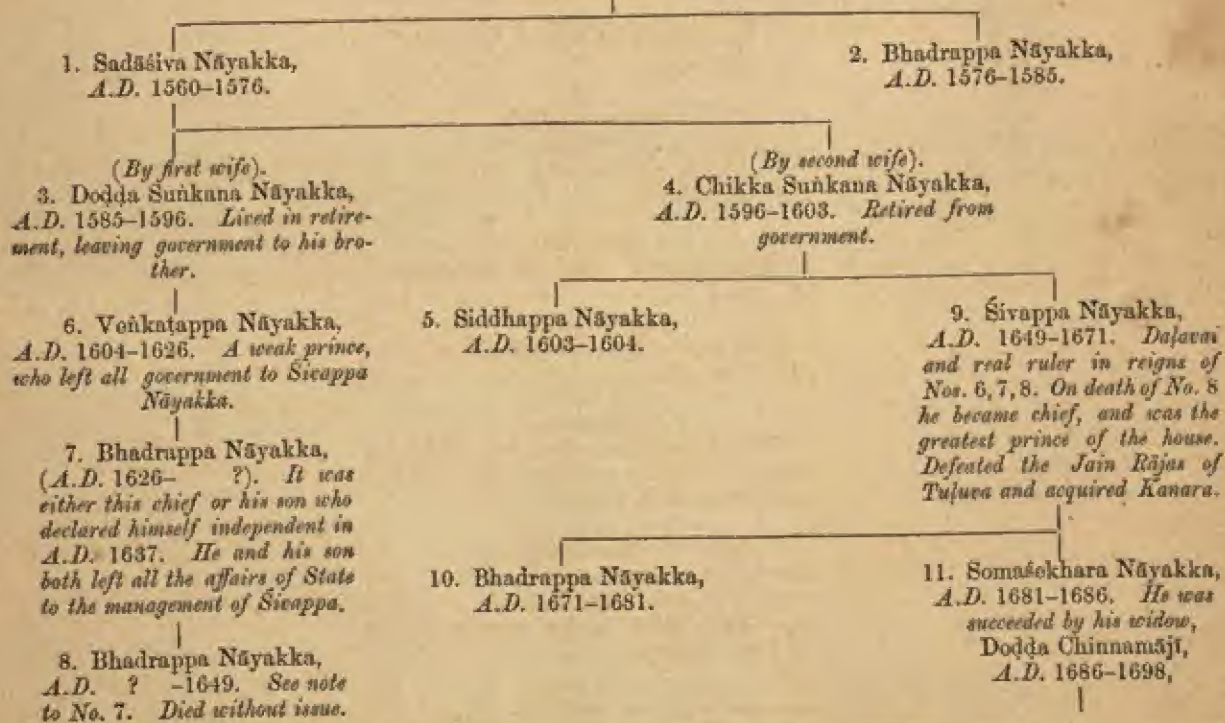 1. Sadāśiva Nāyakka,
A.D. 1560–1576.
2. Bhadrappa Nāyakka,
A.D. 1576–1585.
(By first wife).
3. Doḍḍa Suṅkana Nāyakka,
A.D. 1585–1596. Lived in retire-
ment, leaving government to his bro-
ther.
(By second wife).
4. Chikka Suṅkana Nāyakka,
A.D. 1596–1603. Retired from
government.
6. Veṅkaṭappa Nāyakka,
A.D. 1604–1626. A weak prince,
who left all government to Śivappa
Nāyakka.
5. Siddhappa Nāyakka,
A.D. 1603–1604.
9. Śivappa Nāyakka,
A.D. 1649–1671. Daḷavai
and real ruler in reigns of
Nos. 6, 7, 8. On death of No. 8
he became chief, and was the
greatest prince of the house.
Defeated the Jain Rājas of
Tuḷuva and acquired Kanara.
7. Bhadrappa Nāyakka,
(A.D. 1626– ?). It was
either this chief or his son who
declared himself independent in
A.D. 1637. He and his son
both left all the affairs of State
to the management of Śivappa.
10. Bhadrappa Nāyakka,
A.D. 1671–1681.
11. Somaśekhara Nāyakka,
A.D. 1681–1686. He was
succeeded by his widow,
Doḍḍa Chinnamājī,
A.D. 1686–1698,
8. Bhadrappa Nāyakka,
A.D. ? –1649. See note
to No. 7. Died without issue.